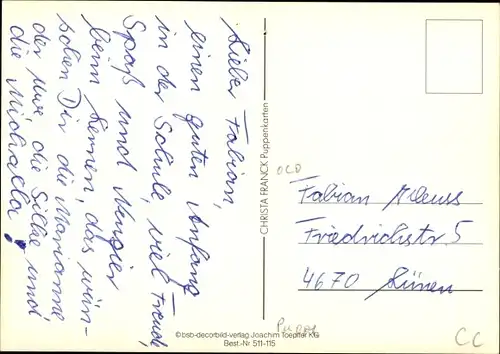 Lieber Fabian,
einen guten Anfang
in der Schule, viel Freude,
Spaß und Neugier
beim Lernen, das wün-
schen Dir die Marianne
der Uwe die Silke und
die Michaela!
CHRISTA FRANCK Puppenkarten
OLD
Fabian
Friedrichstr. 5
4670 Lünen
Puppe
©bsb-decorbild-verlag Joachim Toepffer KG
Best.-Nr 511-115
CC